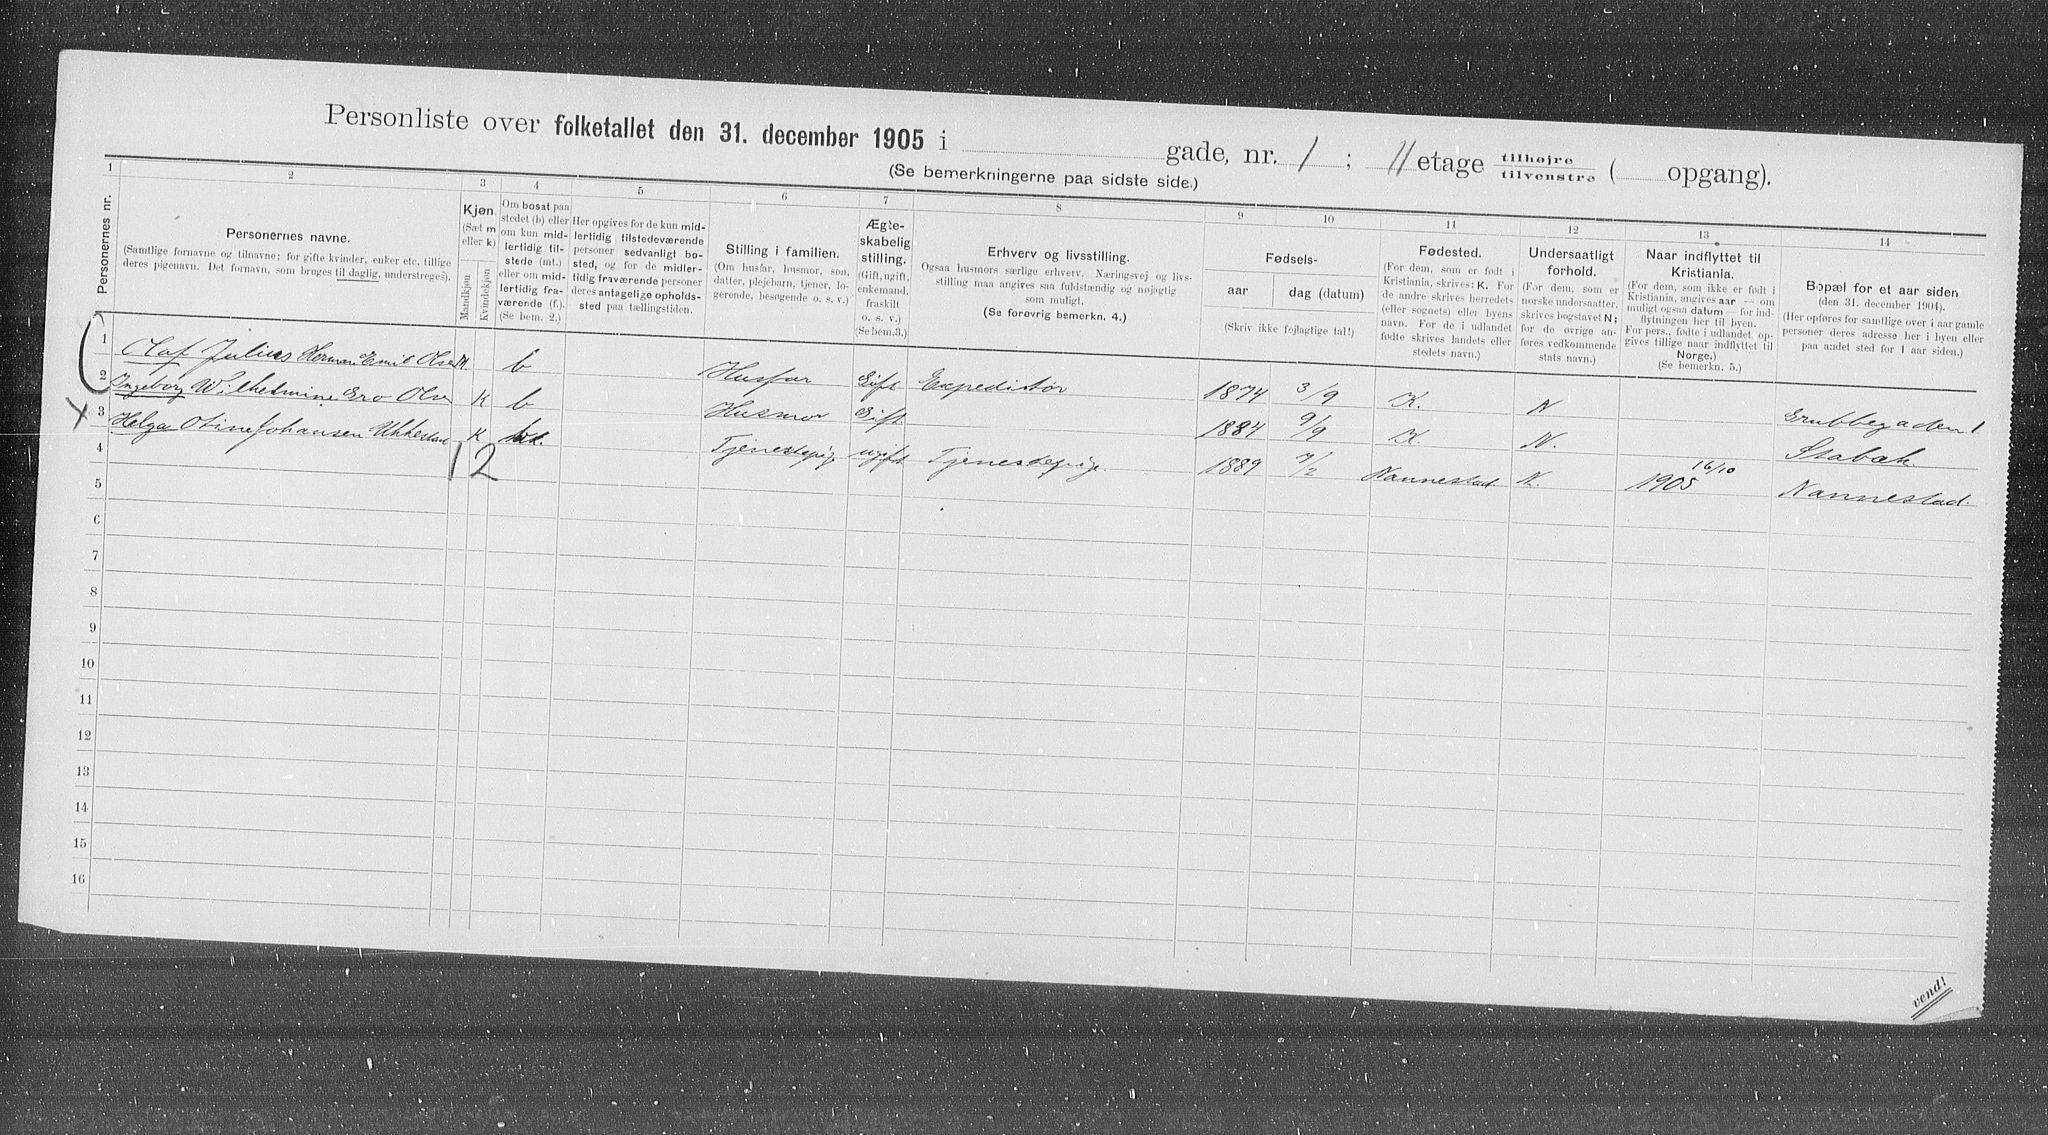 Personliste over folketallet den 31. december 1905 i gade, nr. 1 ; II etage tilhøjre tilvenstre ( opgang).
(Se bemerkningerne paa sidste side.)
1 2 3 4 5 6 7 8 9 10 11 12 13 14
Personernes nr.
Personernes navne.
(Samtlige fornavne og tilnavne; for gifte kvinder, enker etc. tillige
deres pigenavn. Det fornavn, som bruges til daglig, understreges).
Kjøn.
(Sæt m
eller k)
Mandkjøn
Kvindekjøn
Om bosat paa
stedet (b) eller
om kun mid-
lertidig til-
stede (mt.)
eller om mid-
lertidig fra-
værende (f.).
(Se bem. 2.)
Her opgives for de kun mid-
lertidig tilstedeværende
personer sedvanligt bo-
sted, og for de midler-
tidig fraværende personer
deres antagelige opholds-
sted paa tællingstiden.
Stilling i familien.
(Om husfar, husmor, søn,
datter, plejebarn, tjener, lo-
gerende, besøgende o. s. v.)
Ægte-
skabelig
stilling.
(Gift, ugift,
enkemand,
fraskilt
o. s. v.)
(Se bem. 3.)
Erhverv og livsstilling.
Ogsaa husmors særlige erhverv. Næringsvej og livs-
stilling maa angives saa fuldstændig og nøjagtig
som muligt.
(Se forøvrig bemerkn. 4.)
Fødsels-
aar
dag (datum)
(Skriv ikke fejlagtige tal!)
Fødested.
(For dem, som er født i
Kristiania, skrives: K. For
de andre skrives herredets
(eller sognets) eller byens
navn. For de i udlandet
fødte skrives landets eller
stedets navn.)
Undersaatligt
forhold.
(For dem, som er
norske undersaatter,
skrives bogstavet N;
for de øvrige an-
føres vedkommende
stats navn.)
Naar indflyttet til
Kristiania.
(For dem, som ikke er født i
Kristiania, angives aar — om
muligt ogsaa datum — for ind-
flytningen her til byen.
For pers., fødte i udlandet, op-
gives tillige naar indflyttet til
Norge.)
(Se bemerkn. 5.)
Bopæl for et aar siden
(den 31. december 1904).
(Her opføres for samtlige over 1 aar gamle
personer deres adresse her i byen eller
paa andet sted for 1 aar siden.)
1 Olaf Julius Herman Emil Olsen M. b Husfar Gift Expeditör 1874 3/9 K. N Grubbegaden 1
2 Ingeborg Wilhelmine Olsen K b Husmor Gift. 1884 9/9 K N. Stabæk
x 3 Helga Otine Johansen K Tjenestepige ugift Tjenestepige. 1889 7/2 Nannestad. N. 16/10 1905 Nannestad.
4 12
5
6
7
8
9
10
11
12
13
14
15
16
vend!